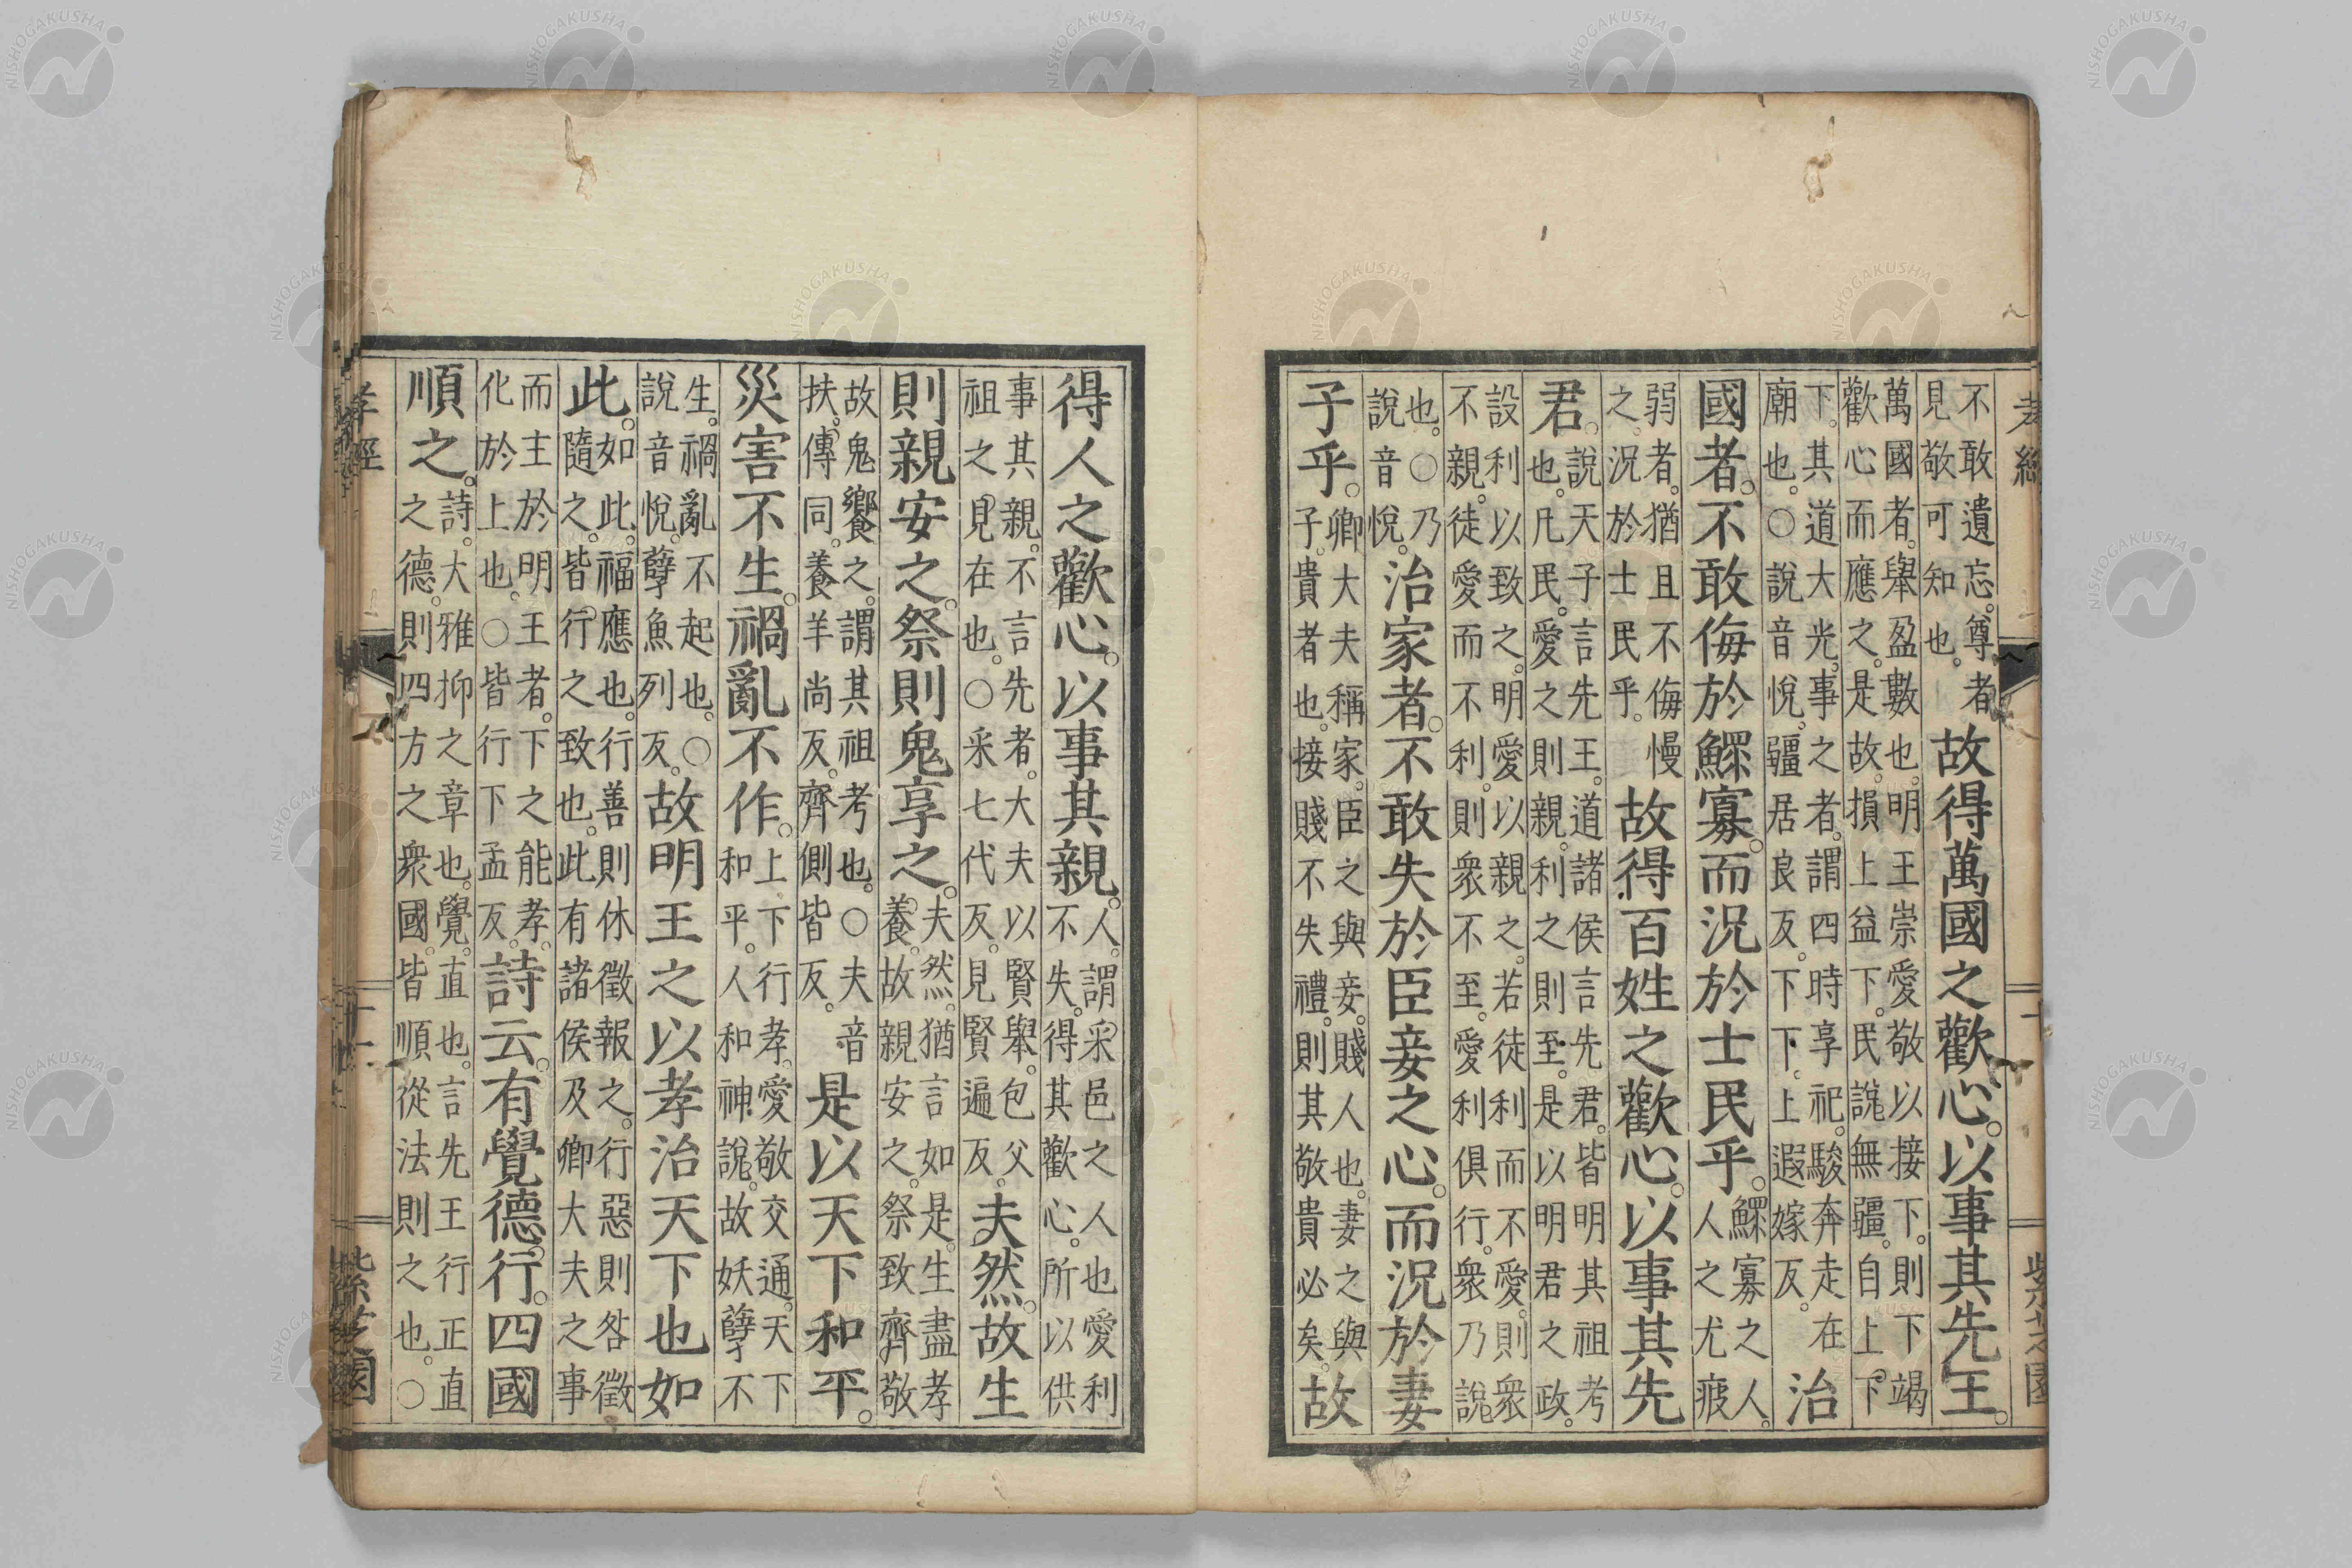 孝經
不敢遺忘。尊者見敬可知也。故得萬國之歡心。以事其先王。
萬國者。舉盈數也。明王崇愛敬以接下。則下竭
歡心而應之。是故損上益下。民說無疆。自上下
下。其道大光。事之者。謂四時享祀。駿奔走在
廟也。○說音悅。疆居良反。下下。上遐嫁反。治
國者。不敢侮於鰥寡。而況於士民乎。鰥寡之人。人之尤疲
弱者。猶且不侮慢之。況於士民乎。故得百姓之歡心。以事其先
君。說天子言先王。道諸侯言先君。皆明其祖考也。凡民。愛之則親。利之則至。是以明君之政。
設利以致之。明愛以親之。若徒利而不愛。則衆
不親。徒愛而不利。則衆不至。愛利俱行。衆乃說
也。○乃說音悅。治家者。不敢失於臣妾之心。而況於妻
子乎。卿大夫稱家。臣之與妾。賤人也。妻之與子。貴者也。接賤不失禮。則其敬貴必矣。故
得人之歡心。以事其親。人。謂采邑之人也愛利不失。得其歡心。所以供
事其親。不言先者。大夫以賢舉。包父
祖之見在也。○采七代反。見賢遍反。夫然。故生
則親安之。祭則鬼享之。夫然。猶言如是。生盡孝養。故親安之。祭致齊敬
故鬼饗之。謂其祖考也。○夫音
扶。傳同。養羊尚反。齊側皆反。是以天下和平。
災害不生。禍亂不作。上下行孝。愛敬交通。天下和平。人和神說。故妖孽不
生。禍亂不起也。○說音悅。孽魚列反。故明王之以孝治天下也如
此。如此。福應也。行善則休徵報之。行惡則咎徵隨之。皆行之致也。此有諸侯及卿大夫之事
而主於明王者。下之能孝。化於上也。○皆行下孟反。詩云。有覺德行。四國
順之。詩。大雅抑之章也。覺。直也。言先王行正直之德。則四方之衆國。皆順從法則之也。○
孝經
十二
紫芝園